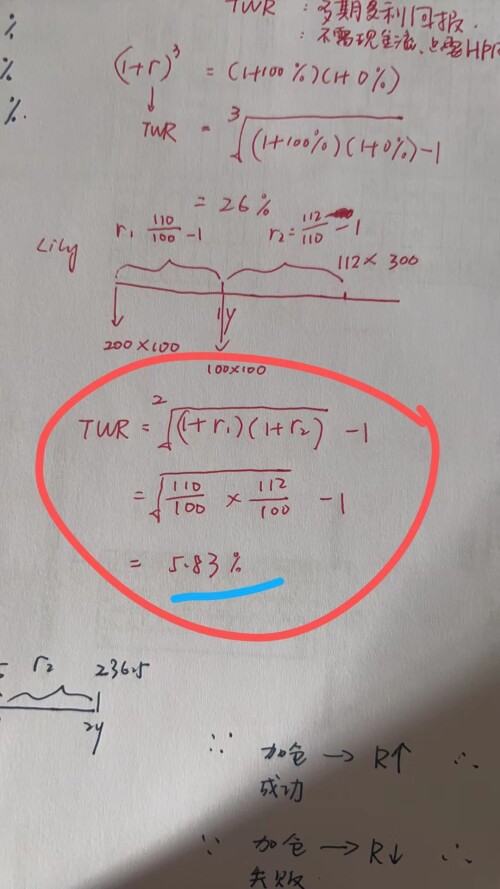 %
%
%.
TWR : 多期复利回报.
: 不需现金流、只需HPR
(1+r)³ = (1+100%)(1+0%)
↓
TWR = ³√(1+100%)(1+0%) -1
= 26%
Lily r₁ 110/100 -1 r₂= 112/110 -1
112 × 300
1y
200×100
100×100
TWR = ²√(1+r₁)(1+r₂) -1
= √110/100 × 112/100 -1
= 5.83%
r₂ 236.5
2y
∵ 加仓 → R↑ ∴
成功
∵ 加仓 → R↓ ∴
失败